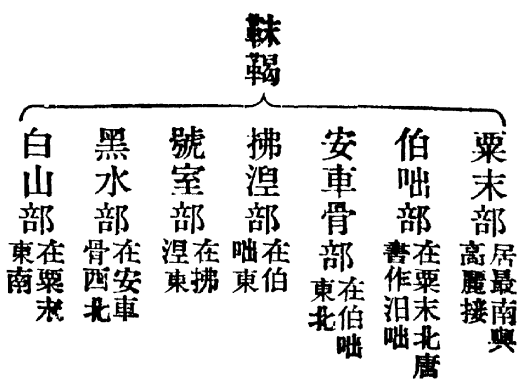 靺鞨
粟末部
居最南與
高麗接
伯咄部
在粟末北唐
書作汨咄
安車骨部
在伯咄
東北
拂湼部
在伯
咄東
號室部
在拂
湼東
黑水部
在安車
骨西北
白山部
在粟末
東南